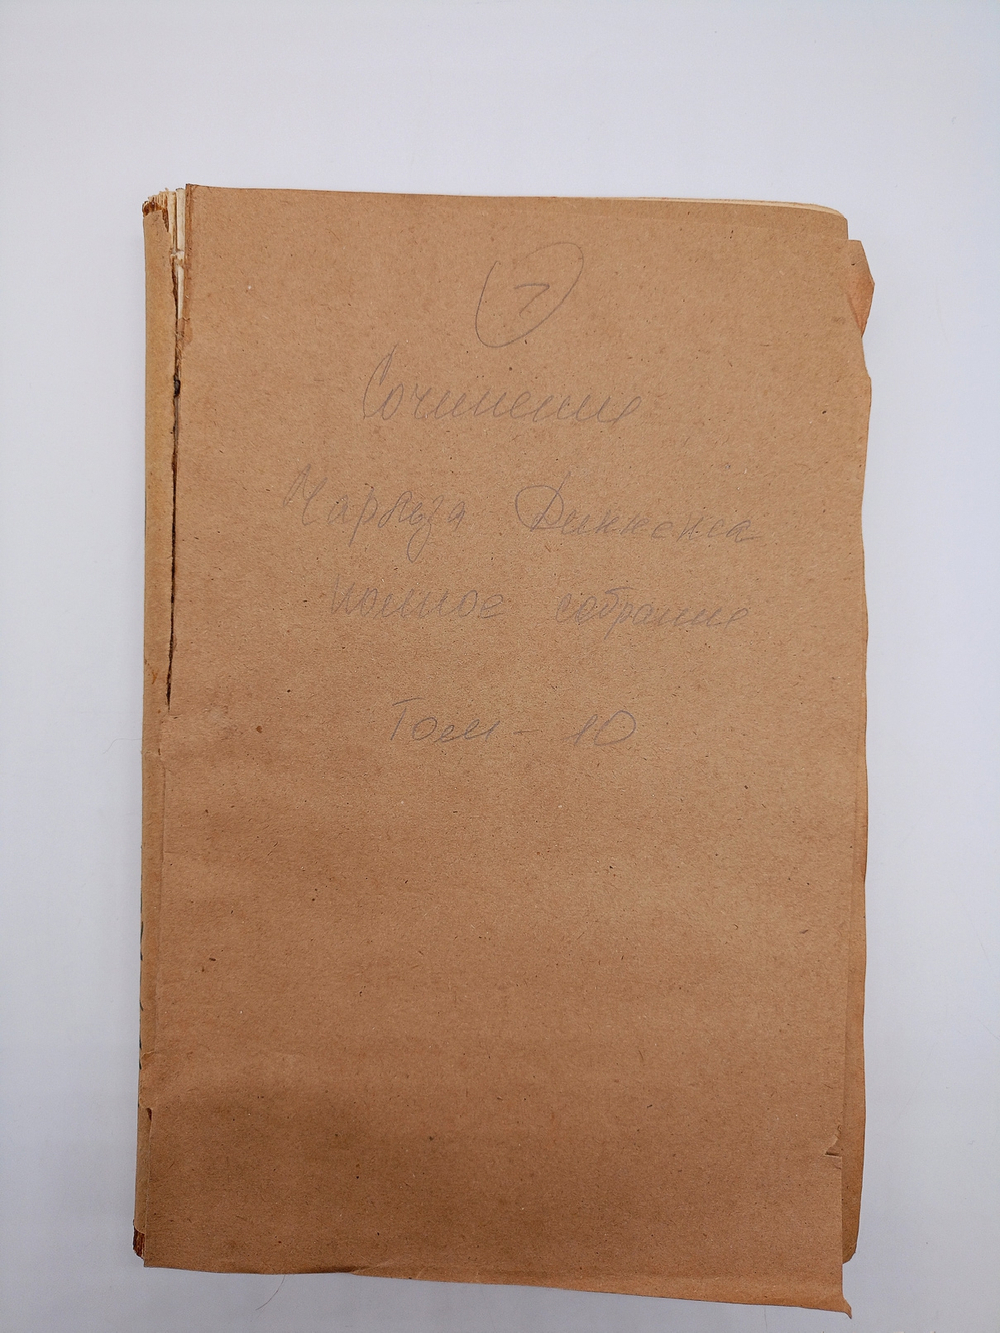 7
Сочинение
Чарльза Диккенса
полное собрание
Том - 10